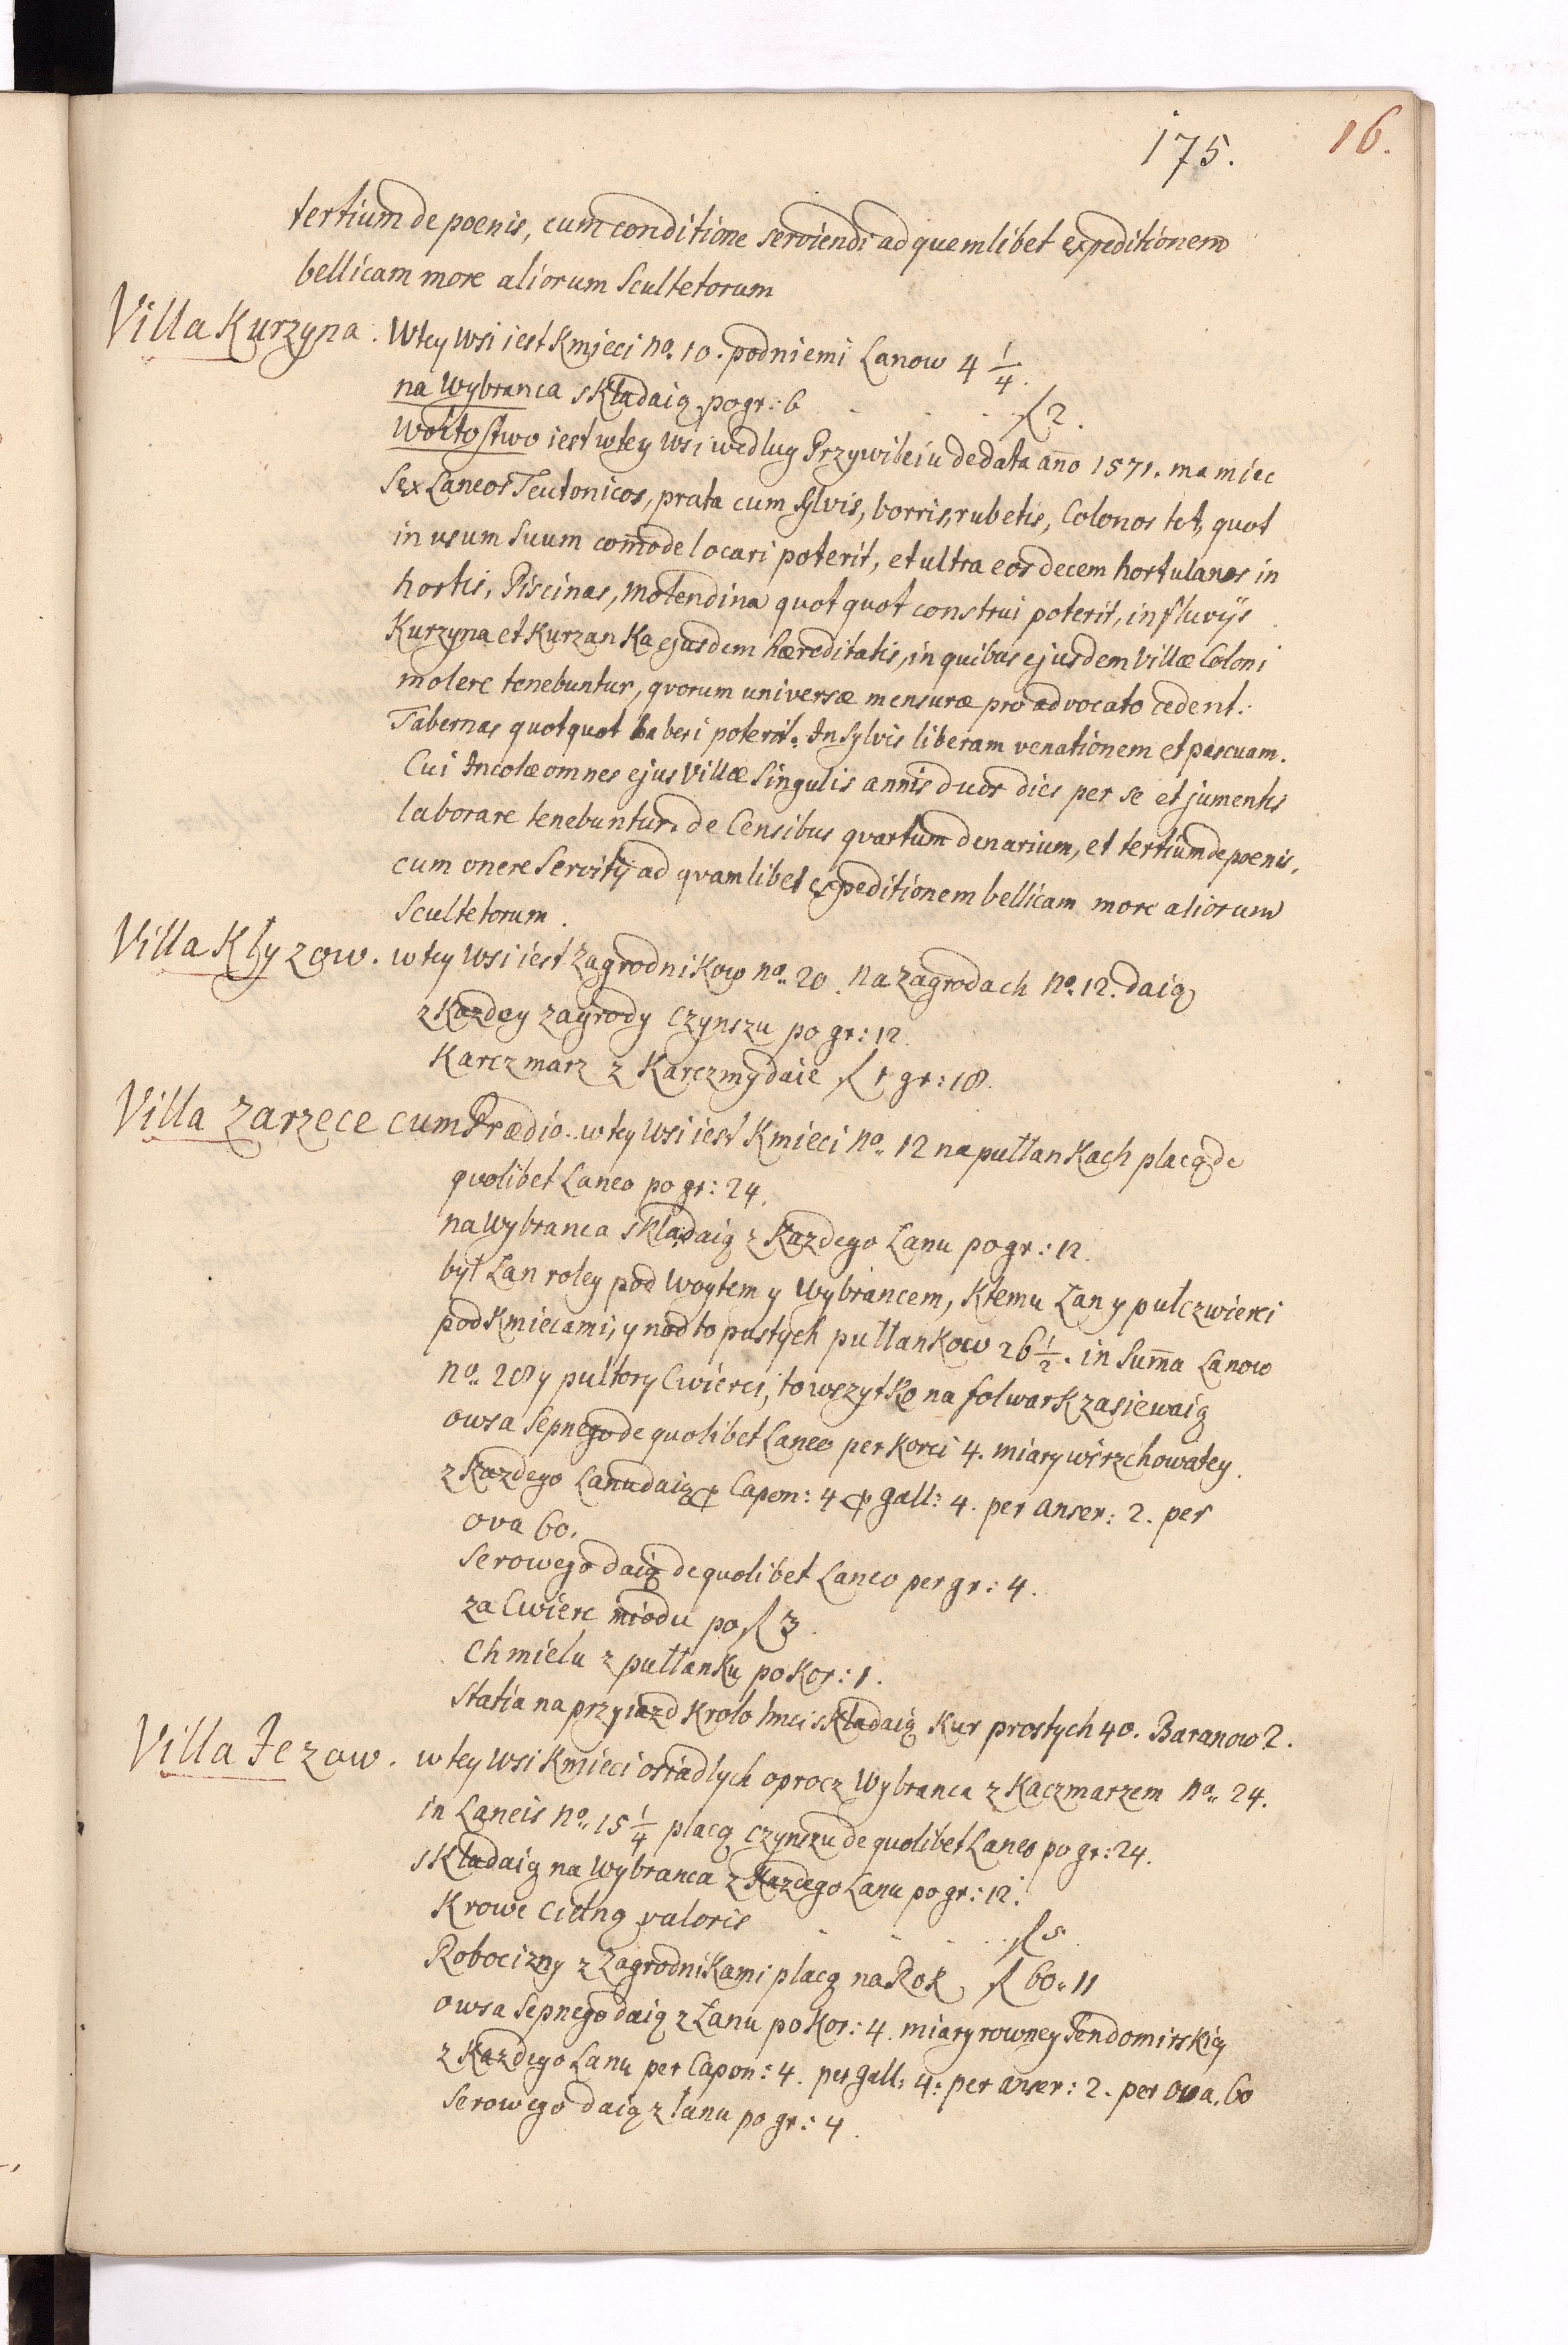 175. 16.
tertium de poenis, cum conditione serviendi ad quemlibet expeditionem
bellicam more aliorum Scultetorum
Villa Kurzyna. Wtey Wsi iest Kmieci no. 10. podniemi Lanow 4 1/4.
na Wybranca składaią po gr: 6 . . . ƒ 2.
Woitostwo iest wtey Wsi według Przywileiu de data ano 1571. ma miec
Sex Laneos Teutonicos, prata cum Sylvis, borris, rubetis, Colonos tot, quot
in usum Suum comode locari poterit, et ultra eos decem hortulanos in
hortis, Piscinas, molendina quotquot construi poterit, in fluvijs
Kurzyna et Kurzanka ejusdem hæreditatis, in quibus ejusdem Villæ Coloni
molere tenebuntur, qvorum universæ mensuræ pro advocato cedent.
Tabernas quotquot haberi poterit. In Sylvis liberam venationem et pascuam.
Cui Incolæ omnes ejus Villæ Singulis annis duos dies per se et jumentis
laborare tenebuntur. de Censibus qvartum denarium, et tertium de poenis,
cum onere Servitij ad qvamlibet expeditionem bellicam more aliorum
Scultetorum.
Villa Kłyzow. wtey Wsi iest Zagrodnikow no. 20. na Zagrodach No. 12. daią
z Kazdey zagrody Czynszu po gr: 12.
Karczmarz z Karczmy daie ƒ 1 gr: 18.
Villa Zarzece cum Prædio. wtey Wsi iest Kmieci no. 12 na pułłankach placą de
qvolibet Laneo po gr: 24.
na Wybranca składaią z Kazdego Lanu po gr: 12.
był Lan roley pod Woytem y Wybrancem, Ktemu Łan y pułczwierci
pod Kmiecami, y nad to pustych pułłankow 26 1/2. in Suma Lanow
no. 28 y pułtory Cwierci, to wszytko na folwark zasiewaią
owsa Sepnego de quolibet Laneo per Korci 4. miary wirzchowatey.
z Kazdego Lanu daią p Capon: 4 p gall: 4. per anser: 2. per
ova 60.
Serowego daią de quolibet Laneo per gr: 4.
za Cwierc miodu po ƒ 3.
Chmielu z pułłanku po Kor: 1.
Statia na przyiazd Krolo Imci składaią Kur prostych 40. Baranow 2.
Villa Jezow. wtey Wsi Kmieci osiadlych oprocz Wybranca z Kaczmarzem no. 24.
in Laneis no. 15 1/4 placą czynszu de quolibet Laneo po gr: 24.
składaią na Wybranca z Kazdego Lanu po gr: 12.
Krowe Cielną valoris . . . ƒ 5
Robocizny z Zagrodnikami placą na Rok ƒ 60. 11
owsa Sepnego daią z Łanu po Kor: 4. miary rowney Sendomirskiey
z Kazdego Lanu per Capon: 4. per gall: 4: per anser: 2. per ova. 60
Serowego daią z łanu po gr: 4.